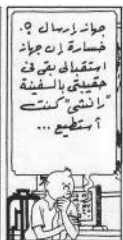 جهاز إرسال ؟.
خسارة إن جهاز
استقبالى بقى فى
حقيبتى بالسفينة
"رانشى" كنت
أستطيع ...